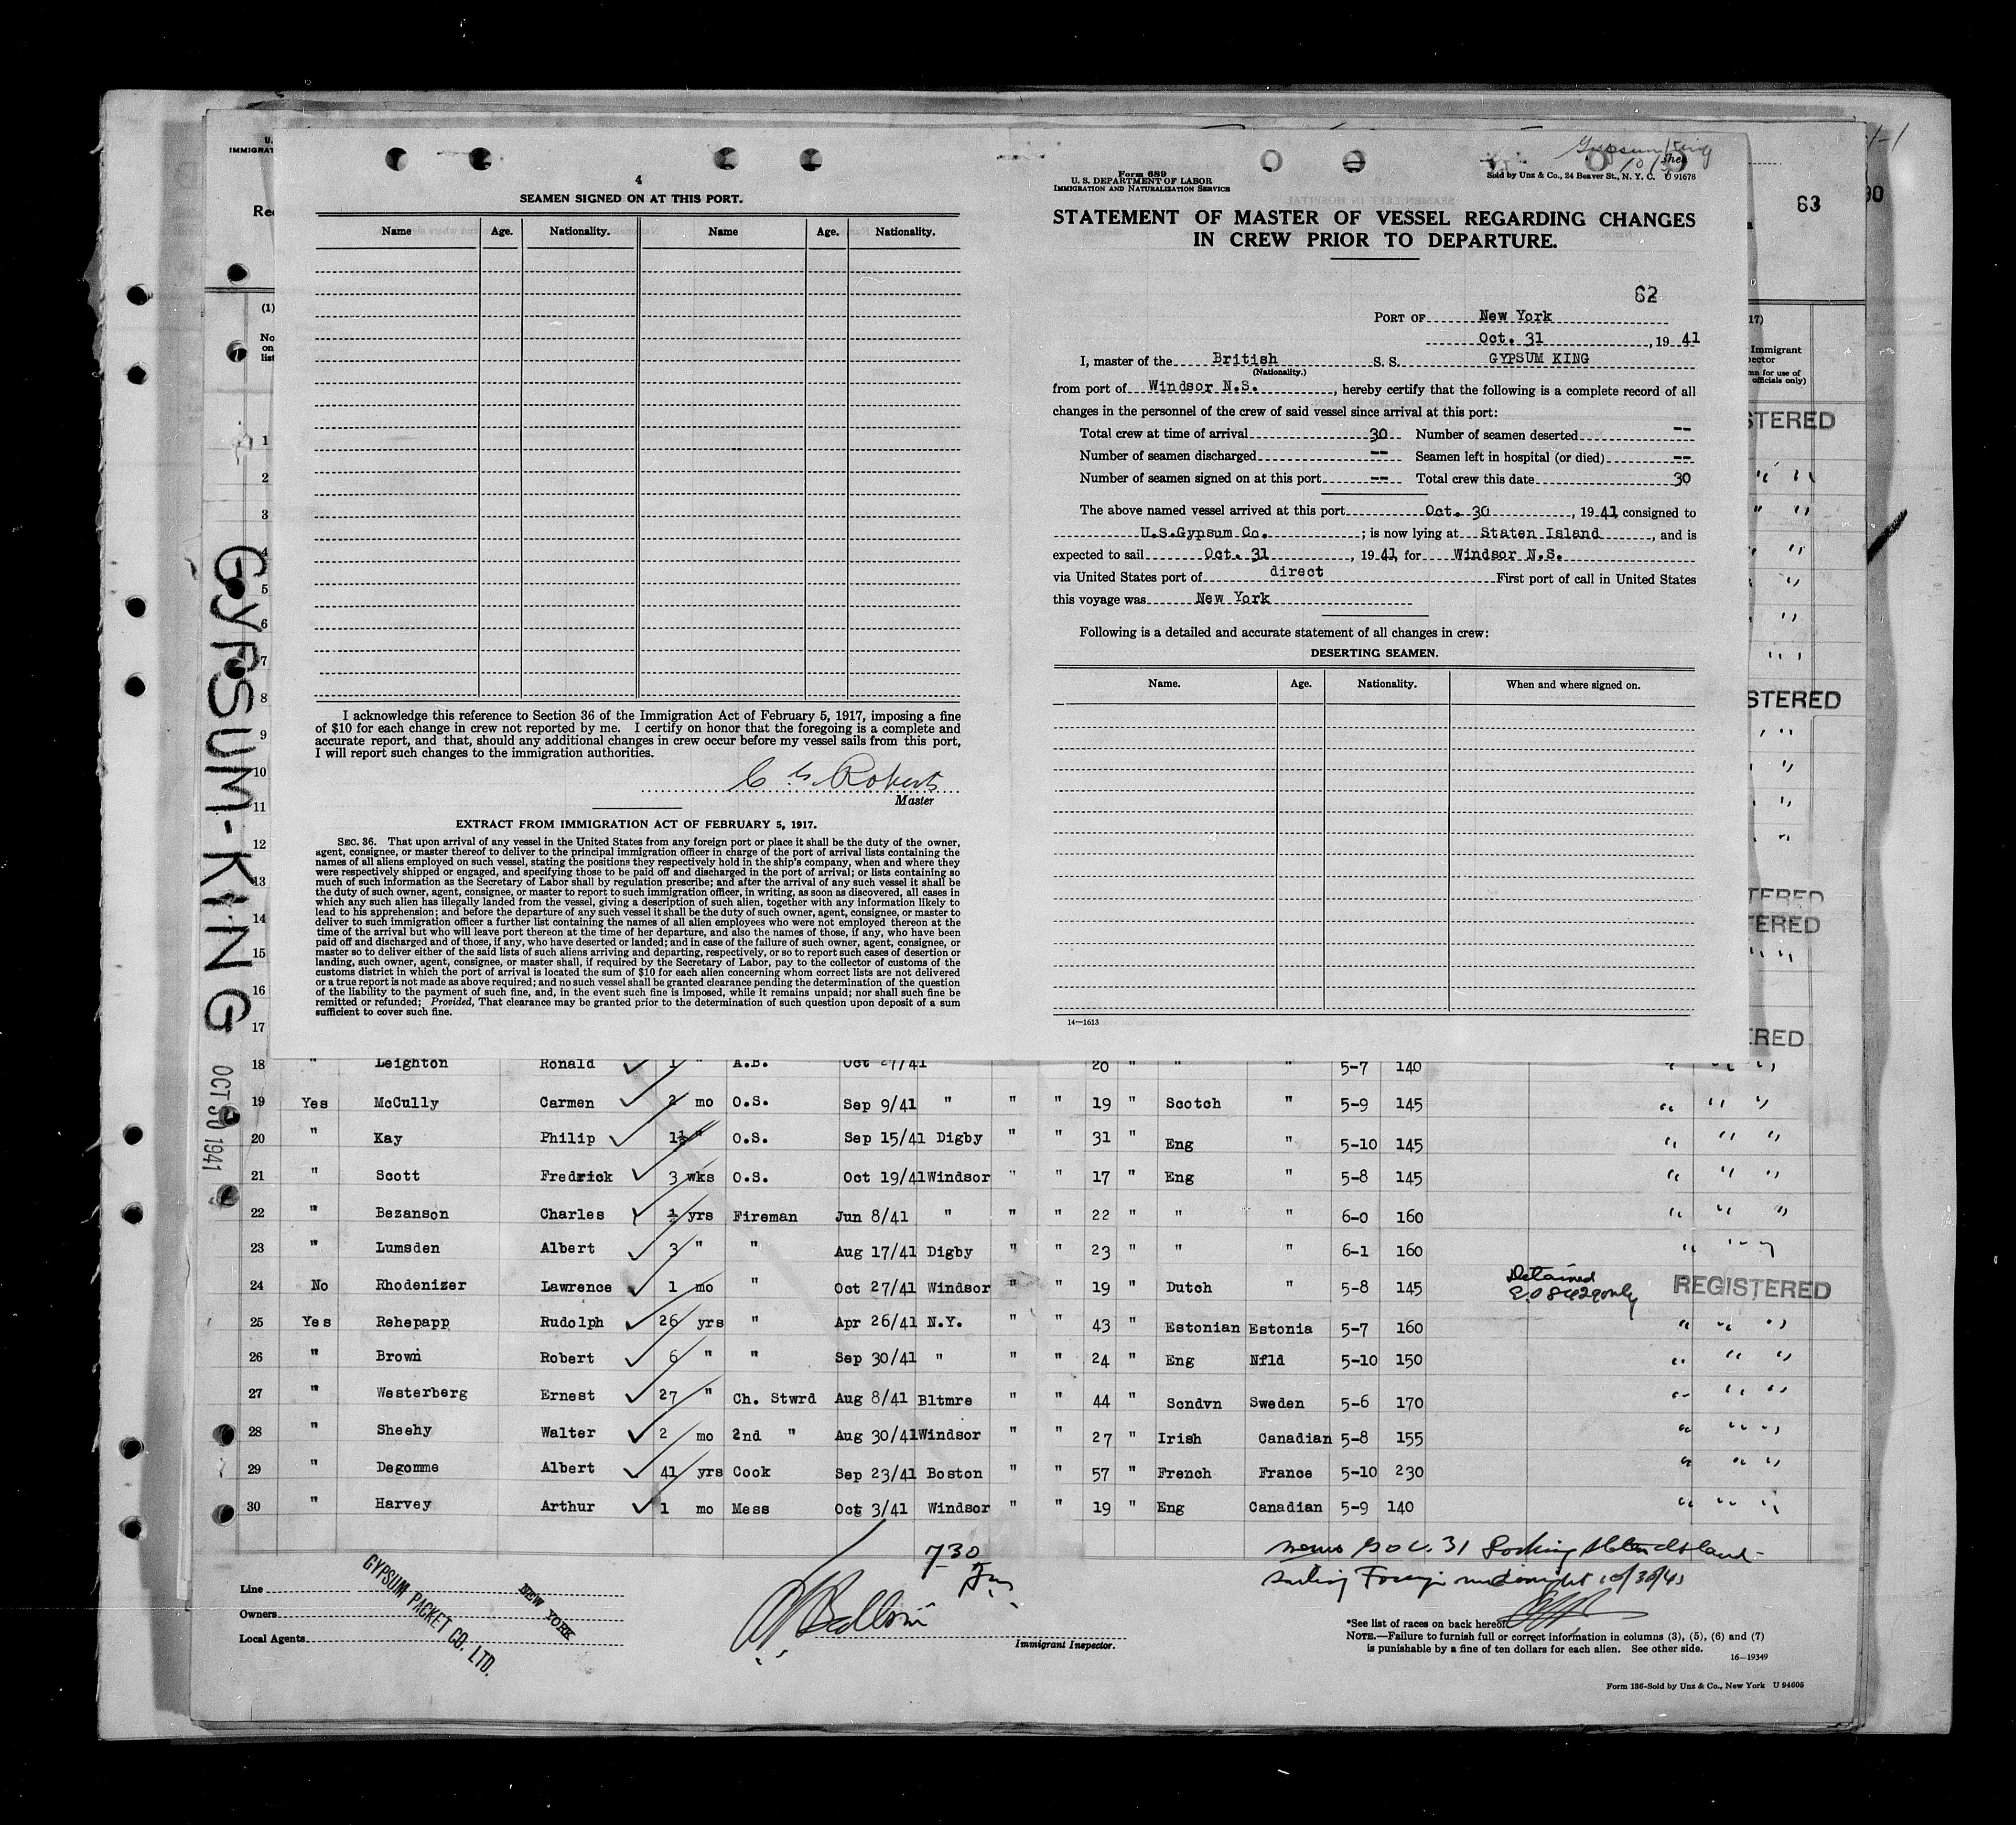 4
SEAMEN SIGNED ON AT THIS PORT.
Name Age. Nationality. Name Age. Nationality.
I acknowledge this reference to Section 36 of the Immigration Act of February 5, 1917, imposing a fine
of $10 for each change in crew not reported by me. I certify on honor that the foregoing is a complete and
accurate report, and that, should any additional changes in crew occur before my vessel sails from this port,
I will report such changes to the immigration authorities.
Roberts
Master
EXTRACT FROM IMMIGRATION ACT OF FEBRUARY 5, 1917.
SEC. 36. That upon arrival of any vessel in the United States from any foreign port or place it shall be the duty of the owner,
agent, consignee, or master thereof to deliver to the principal immigration officer in charge of the port of arrival lists containing the
names of all aliens employed on such vessel, stating the positions they respectively hold in the ship's company, when and where they
were respectively shipped or engaged, and specifying those to be paid off and discharged in the port of arrival; or lists containing so
much of such information as the Secretary of Labor shall by regulation prescribe; and after the arrival of any such vessel it shall be
the duty of such owner, agent, consignee, or master to report to such immigration officer, in writing, as soon as discovered, all cases in
which any such alien has illegally landed from the vessel, giving a description of such alien, together with any information likely to
lead to his apprehension; and before the departure of any such vessel it shall be the duty of such owner, agent, consignee, or master to
deliver to such immigration officer a further list containing the names of all alien employees who were not employed thereon at the
time of the arrival but who will leave port thereon at the time of her departure, and also the names of those, if any, who have been
paid off and discharged and of those, if any, who have deserted or landed; and in case of the failure of such owner, agent, consignee, or
master so to deliver either of the said lists of such aliens arriving and departing, respectively, or so to report such cases of desertion or
landing, such owner, agent, consignee, or master shall, if required by the Secretary of Labor, pay to the collector of customs of the
customs district in which the port of arrival is located the sum of $10 for each alien concerning whom correct lists are not delivered
or a true report is not made as above required; and no such vessel shall be granted clearance pending the determination of the question
of the liability to the payment of such fine, and, in the event such fine is imposed, while it remains unpaid; nor shall such fine be
remitted or refunded; Provided, That clearance may be granted prior to the determination of such question upon deposit of a sum
sufficient to cover such fine.
Gypsum King
Form 689
U. S. DEPARTMENT OF LABOR
IMMIGRATION AND NATURALIZATION SERVICE
Sold by Unz & Co., 24 Beaver St., N. Y. C. U 91678
STATEMENT OF MASTER OF VESSEL REGARDING CHANGES
IN CREW PRIOR TO DEPARTURE.
62
PORT OF New York
Oct. 31, 1941
I, master of the British S. S. GYPSUM KING
(Nationality.)
from port of Windsor N.S., hereby certify that the following is a complete record of all
changes in the personnel of the crew of said vessel since arrival at this port:
Total crew at time of arrival 30 Number of seamen deserted --
Number of seamen discharged -- Seamen left in hospital (or died) --
Number of seamen signed on at this port -- Total crew this date 30
The above named vessel arrived at this port Oct. 30, 1941 consigned to
U.S.Gypsum Co.; is now lying at Staten Island, and is
expected to sail Oct. 31, 1941, for Windsor N.S.
via United States port of direct First port of call in United States
this voyage was New York
Following is a detailed and accurate statement of all changes in crew:
DESERTING SEAMEN.
Name. Age. Nationality. When and where signed on.
14—1613
63
90
U.
IMMIGRAT
Rec
(1)
No
on
list
17)
Immigrant
ector
mn for use of
officials only)
1 STERED
2 " "
3 " "
4 " "
5 "
6 "
7 " "
8 STERED
9 " "
10 "
11 "
12 "
13 TERED
14 FERED
15 " "
16
17 ERED
GYPSUM-KING
OCT 30 1941
18 " Leighton Ronald 1 " A.B. Oct 27/41 20 " " " 5-7 140 " " "
19 Yes McCully Carmen 2 mo O.S. Sep 9/41 " " " 19 " Scotch " 5-9 145 " " "
20 " Kay Philip 1½ " O.S. Sep 15/41 Digby " " 31 " Eng " 5-10 145 " " "
21 " Scott Fredrick 3 wks O.S. Oct 19/41 Windsor " " 17 " Eng " 5-8 145 " " "
22 " Bezanson Charles ½ yrs Fireman Jun 8/41 " " " 22 " " " 6-0 160 " " "
23 " Lumsden Albert 3 " " Aug 17/41 Digby " " 23 " " " 6-1 160 " " "
24 No Rhodenizer Lawrence 1 mo " Oct 27/41 Windsor " " 19 " Dutch " 5-8 145 Detained E.O 8429 only REGISTERED
25 Yes Rehepapp Rudolph 26 yrs " Apr 26/41 N.Y. " " 43 " Estonian Estonia 5-7 160 " " "
26 " Brown Robert 6 " " Sep 30/41 " " " 24 " Eng Nfld 5-10 150 " " "
27 " Westerberg Ernest 27 " Ch. Stwrd Aug 8/41 Bltmre " " 44 " Scndvn Sweden 5-6 170 " " "
28 " Sheehy Walter 2 mo 2nd " Aug 30/41 Windsor " " 27 " Irish Canadian 5-8 155 " " "
29 " Degomme Albert 41 yrs Cook Sep 23/41 Boston " " 57 " French France 5-10 230 " " "
30 " Harvey Arthur 1 mo Mess Oct 3/41 Windsor " " 19 " Eng Canadian 5-9 140 " " "
730
Line
Owners
Local Agents
GYPSUM PACKET CO. LTD.
NEW YORK
Immigrant Inspector.
31 Docking Staten Island
sailing Foreign midnight 10/30/41
*See list of races on back hereof.
NOTE.—Failure to furnish full or correct information in columns (3), (5), (6) and (7)
is punishable by a fine of ten dollars for each alien. See other side.
16—19349
Form 136-Sold by Unz & Co., New York U 94605